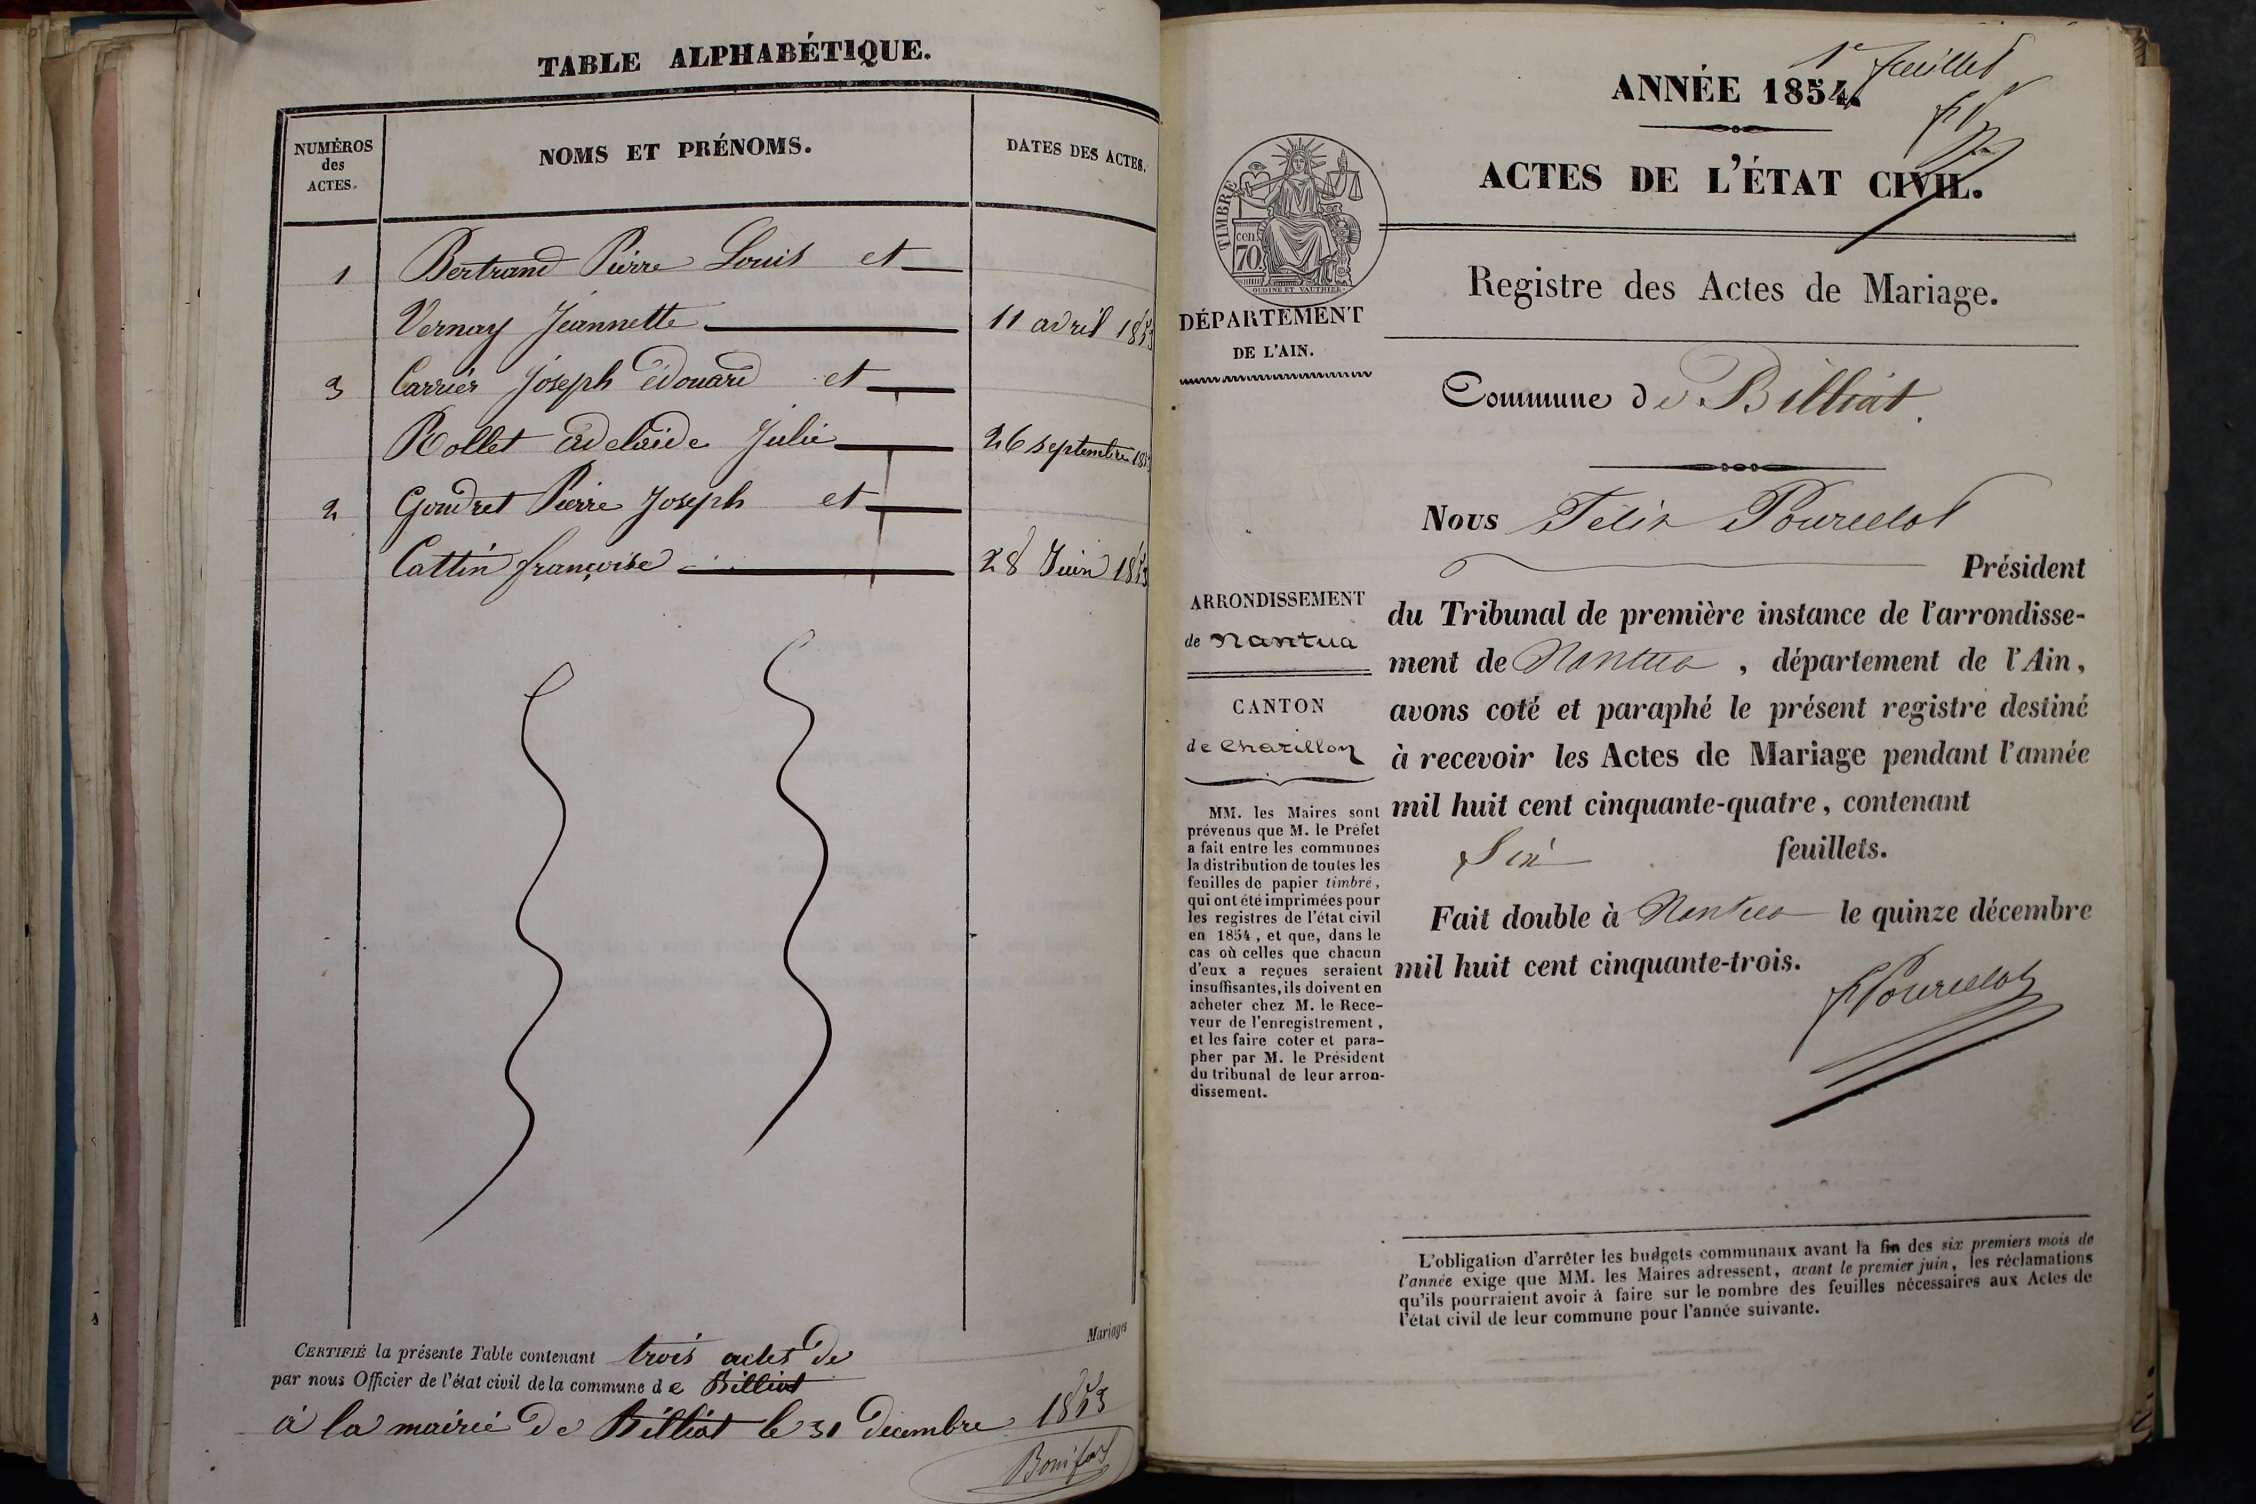 TABLE ALPHABÉTIQUE.
NUMÉROS
des
ACTES.
NOMS ET PRÉNOMS.
DATES DES ACTES.
1 Bertrand Pierre Louis et
Vernay Jeannette 11 avril 1853
3 Carrier Joseph édouard et
Rollet adelaide Julie 26 septembre 1853
2 Goudret Pierre Joseph et
Cattin françoise 28 Juin 1853
CERTIFIÉ la présente Table contenant trois actes de Mariages
par nous Officier de l'état civil de la commune de Billiat
à la mairie de Billiat le 31 décembre 1853
1er feuillet
ANNÉE 1854.
ACTES DE L'ÉTAT CIVIL.
TIMBRE
70 cen.
OUDINÉ ET VAUTHIER
DÉPARTEMENT
DE L'AIN.
Registre des Actes de Mariage.
Commune de Billiat.
Nous Félix Pourcelot
Président
du Tribunal de première instance de l'arrondisse-
ment de Nantua, département de l'Ain,
avons coté et paraphé le présent registre destiné
à recevoir les Actes de Mariage pendant l'année
mil huit cent cinquante-quatre, contenant
Six feuillets.
Fait double à Nantua le quinze décembre
mil huit cent cinquante-trois.
FPourcelot
ARRONDISSEMENT
de Nantua
CANTON
de Chatillon
MM. les Maires sont
prévenus que M. le Préfet
a fait entre les communes
la distribution de toutes les
feuilles de papier timbré,
qui ont été imprimées pour
les registres de l'état civil
en 1854, et que, dans le
cas où celles que chacun
d'eux a reçues seraient
insuffisantes, ils doivent en
acheter chez M. le Rece-
veur de l'enregistrement,
et les faire coter et para-
pher par M. le Président
du tribunal de leur arron-
dissement.
L'obligation d'arrêter les budgets communaux avant la fin des six premiers mois de
l'année exige que MM. les Maires adressent, avant le premier juin, les réclamations
qu'ils pourraient avoir à faire sur le nombre des feuilles nécessaires aux Actes de
l'état civil de leur commune pour l'année suivante.